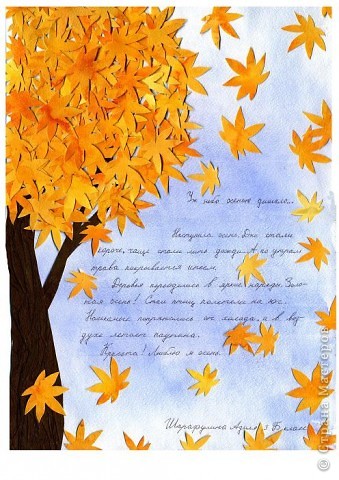 Уж небо осенью дышало...
Наступила осень. Дни стали
короче, чаще стали лить дожди. А по утрам
трава покрывается инеем.
Деревья переоделись в яркие наряды. Золо-
тая осень! Стаи птиц полетели на юг.
Насекомые попрятались от холода, а в воз-
духе летает паутина.
Красота! Люблю я осень.
3 Б класс
© Страна Мастеров